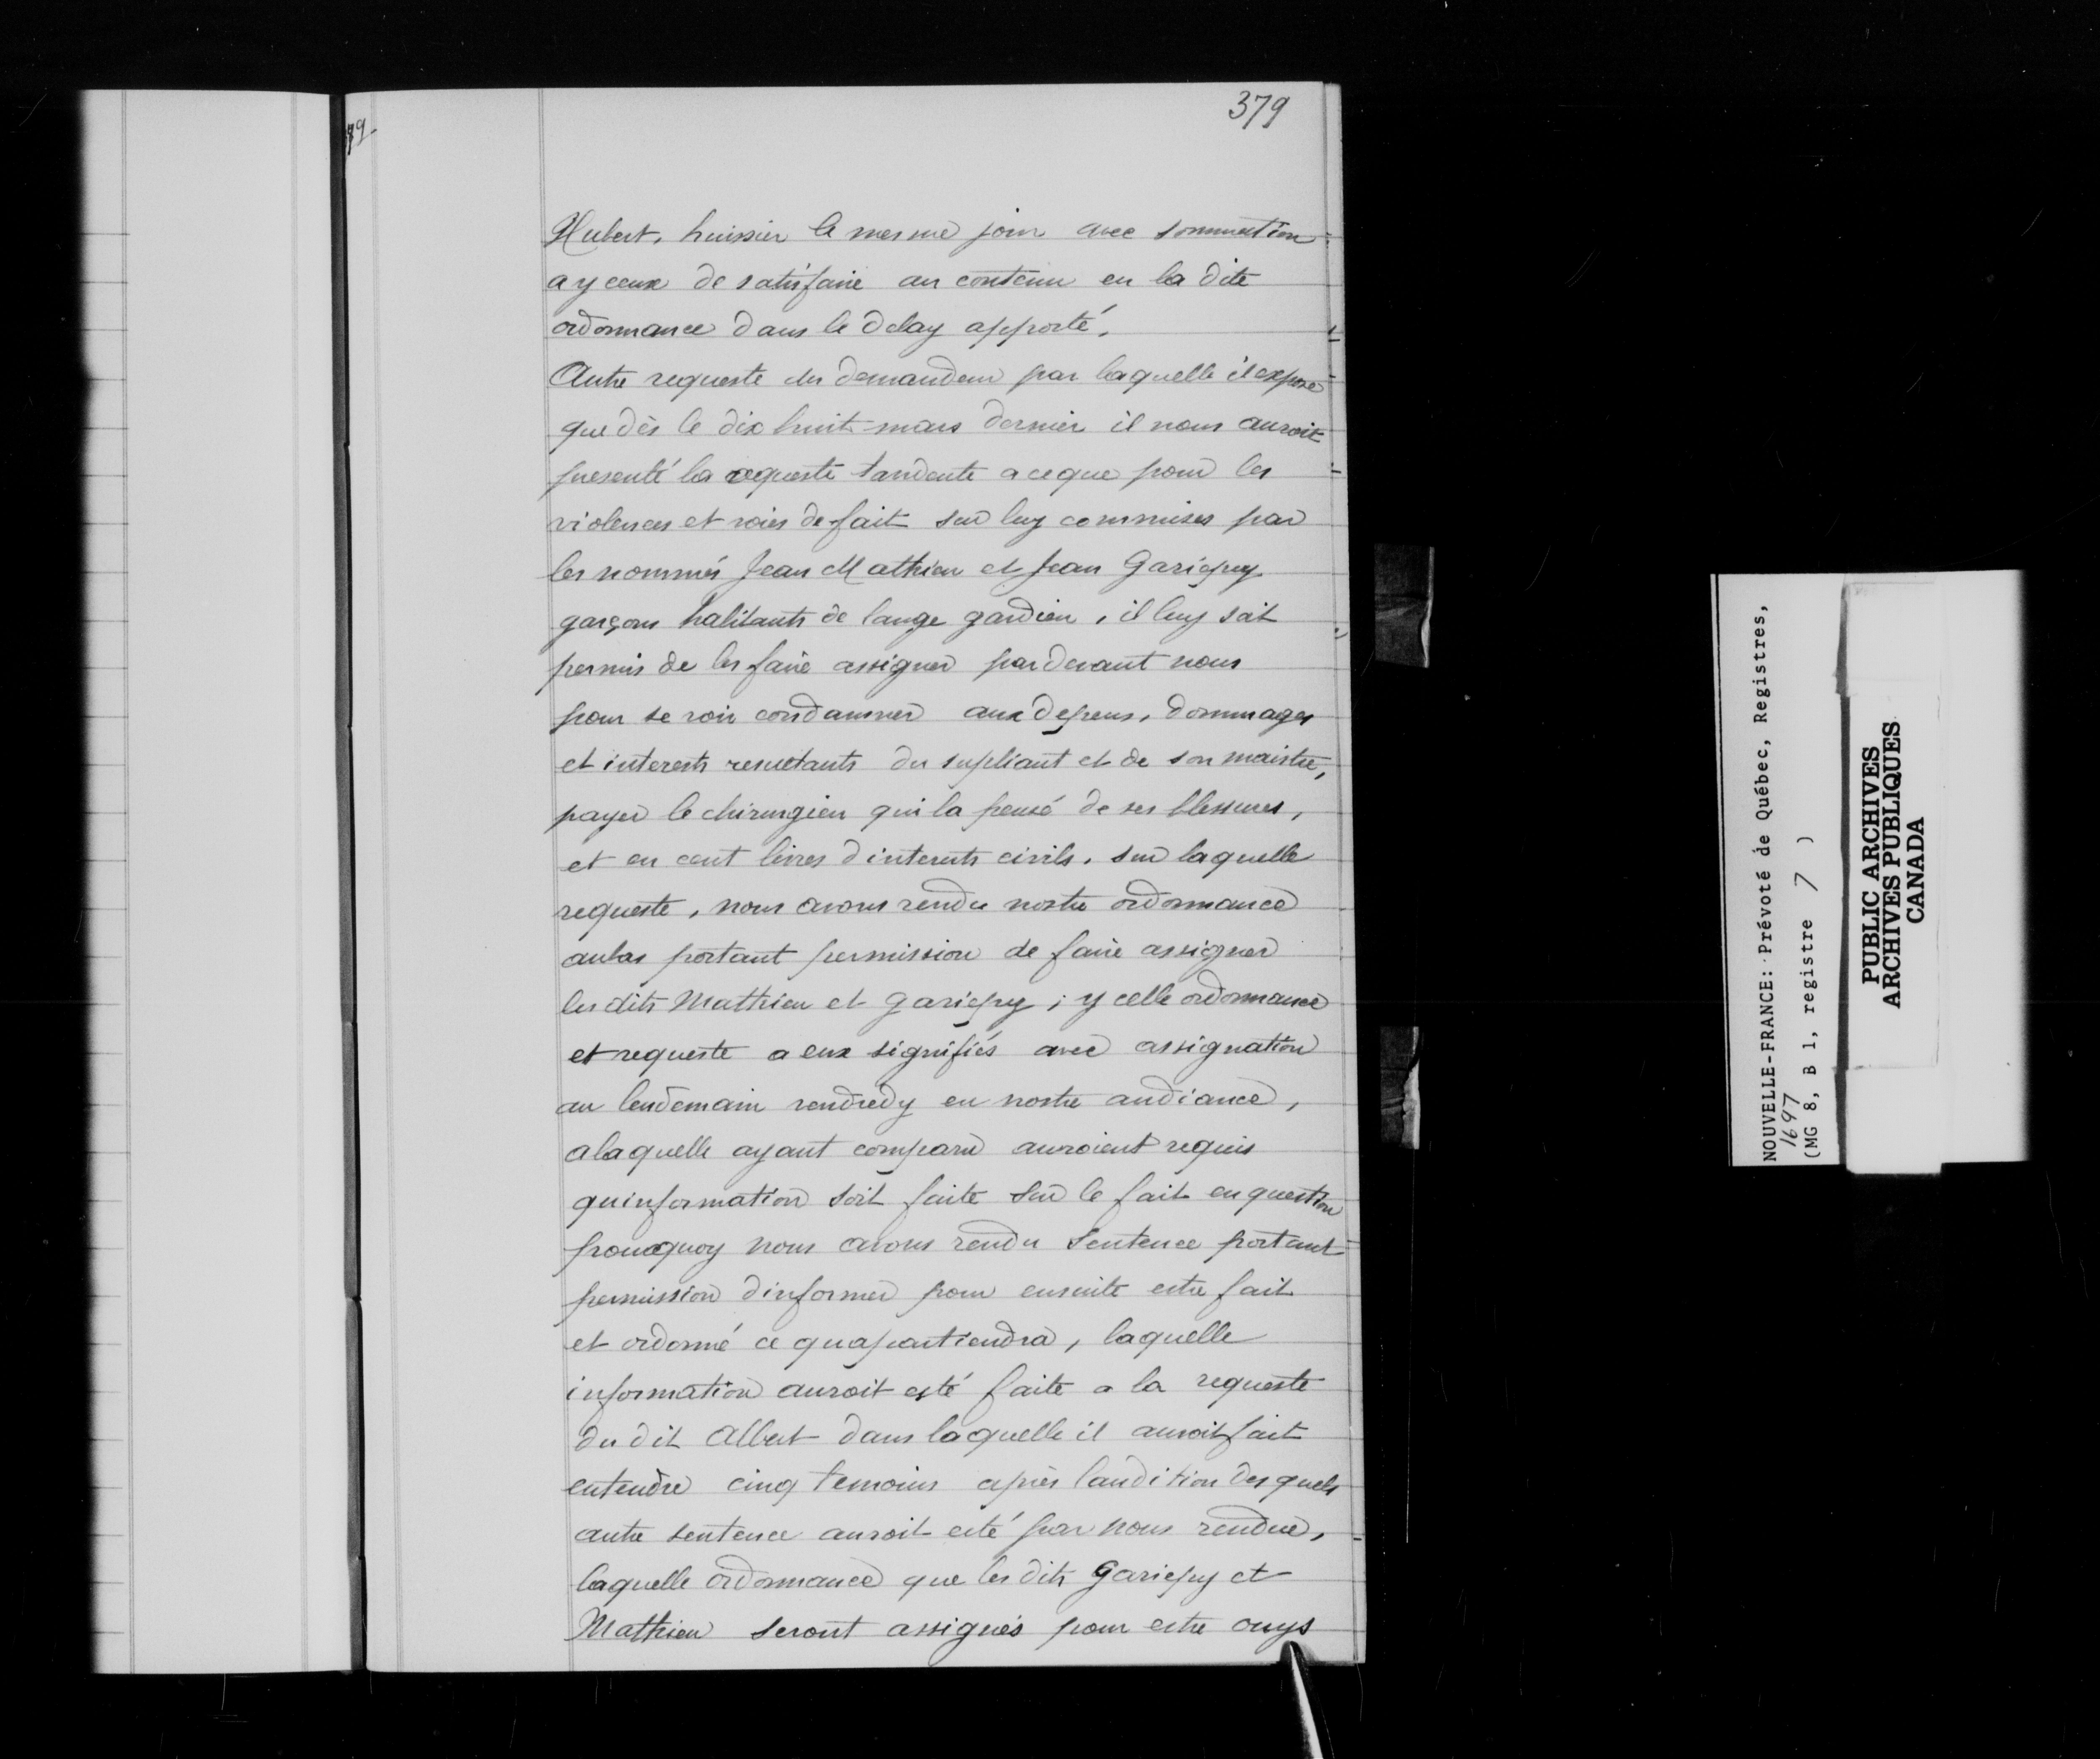 379
79.
Hubert, huissier le mesme jour avec sommation
a yceux de satisfaire au contenu en la dite
ordonnance dans le delay apporté.
Autre requeste du demandeur par laquelle il expose
que dès le dix huit mars dernier il nous auroit
presenté la requeste tandente a ce que pour les
violences et voies de fait sur luy commises par
les nommés Jean Mathieu et Jean Gariepuy
garçons habitants de lange gardien, il luy soit
permis de les faire assigner pardevant nous
pour se voir condamner aux depens, dommages
et interests resultants du supliant et de son maistre,
payer le chirurgien qui la pensé de ses blessures,
et en cent livres d'interests civils. sur laquelle
requeste, nous avons rendu nostre ordonnance
aubas portant permission de faire assigner
les dits Mathieu et gariepuy; ycelle ordonnance
et requeste a eux signifiés avec assignation
au lendemain vendredy en nostre audiance,
alaquelle ayant comparu auroient requis
quinformation soit faite sur le fait en question
pourquoy nous avons rendu sentence portant
permission d'informer pour ensuite estre fait
et ordonné ce quapartiendra, laquelle
information auroit esté faite a la requeste
du dit Albert dans laquelle il auroit fait
entendre cinq temoins après laudition desquels
autre sentence auroit esté par nous rendue,
laquelle ordonnance que les dits Gariepuy et
Mathieu seront assignés pour estre ouys
NOUVELLE-FRANCE: Prévoté de Québec, Registres,
1697
(MG 8, B 1, registre 7 )
PUBLIC ARCHIVES
ARCHIVES PUBLIQUES
CANADA